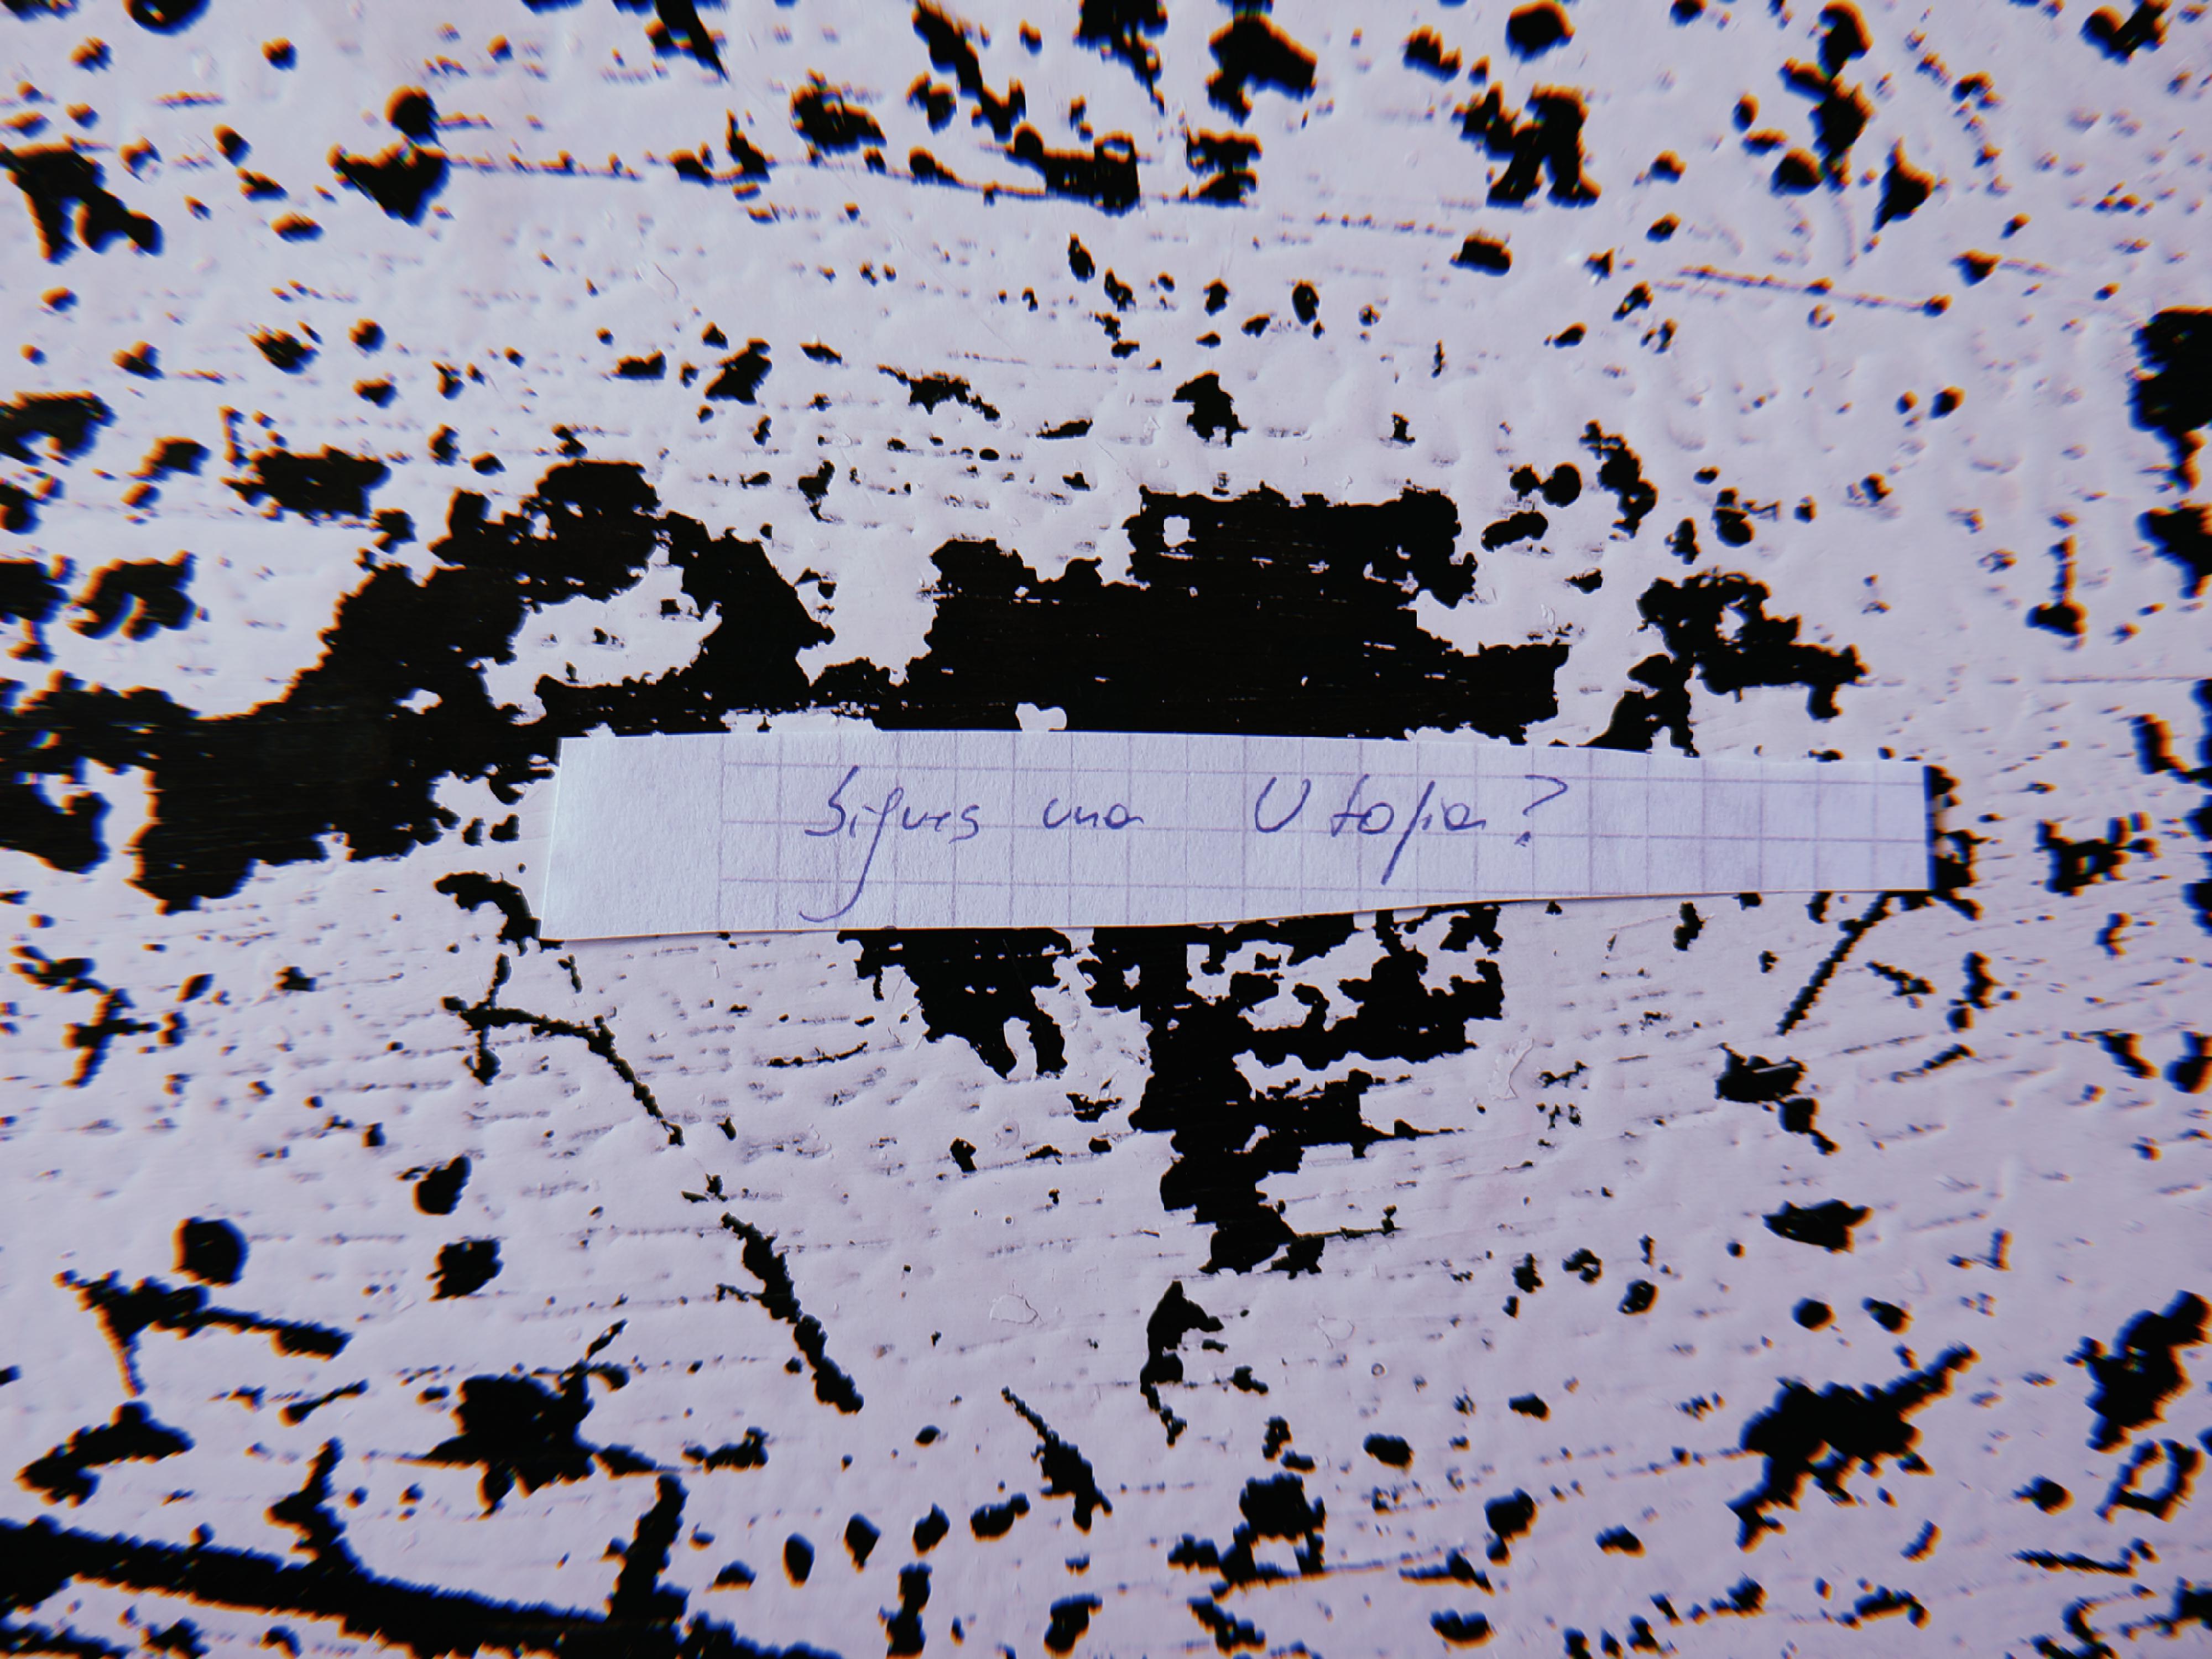 Sigues una Utopia?